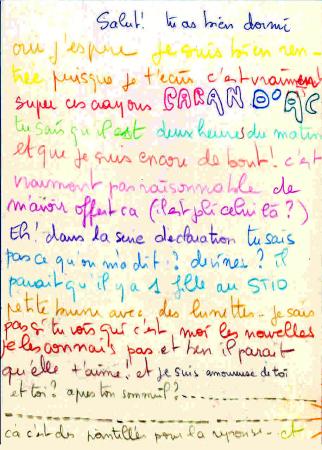 Salut! tu as bien dormi
oui j'espère je suis bien ren-
trée puisque je t'écris c'est vraiment
super ces crayons CARAN D'AC
tu sais qu'il est deux heures du matin
et que je suis encore debout! c'est
vraiment pas raisonnable de
m'avoir offert ça (il est joli celui là?)
Eh! dans la série déclaration tu sais
pas ce qu'on m'a dit? devines? Il
parait qu'il y a 1 fille au STID
petite brune avec des lunettes.. je sais
pas si tu vois qui c'est moi les nouvelles
je les connais pas et ben il parait
qu'elle t'aime! et je suis amoureuse de toi
et toi? après ton sommeil?
ça c'est des pointillés pour la réponse.. et